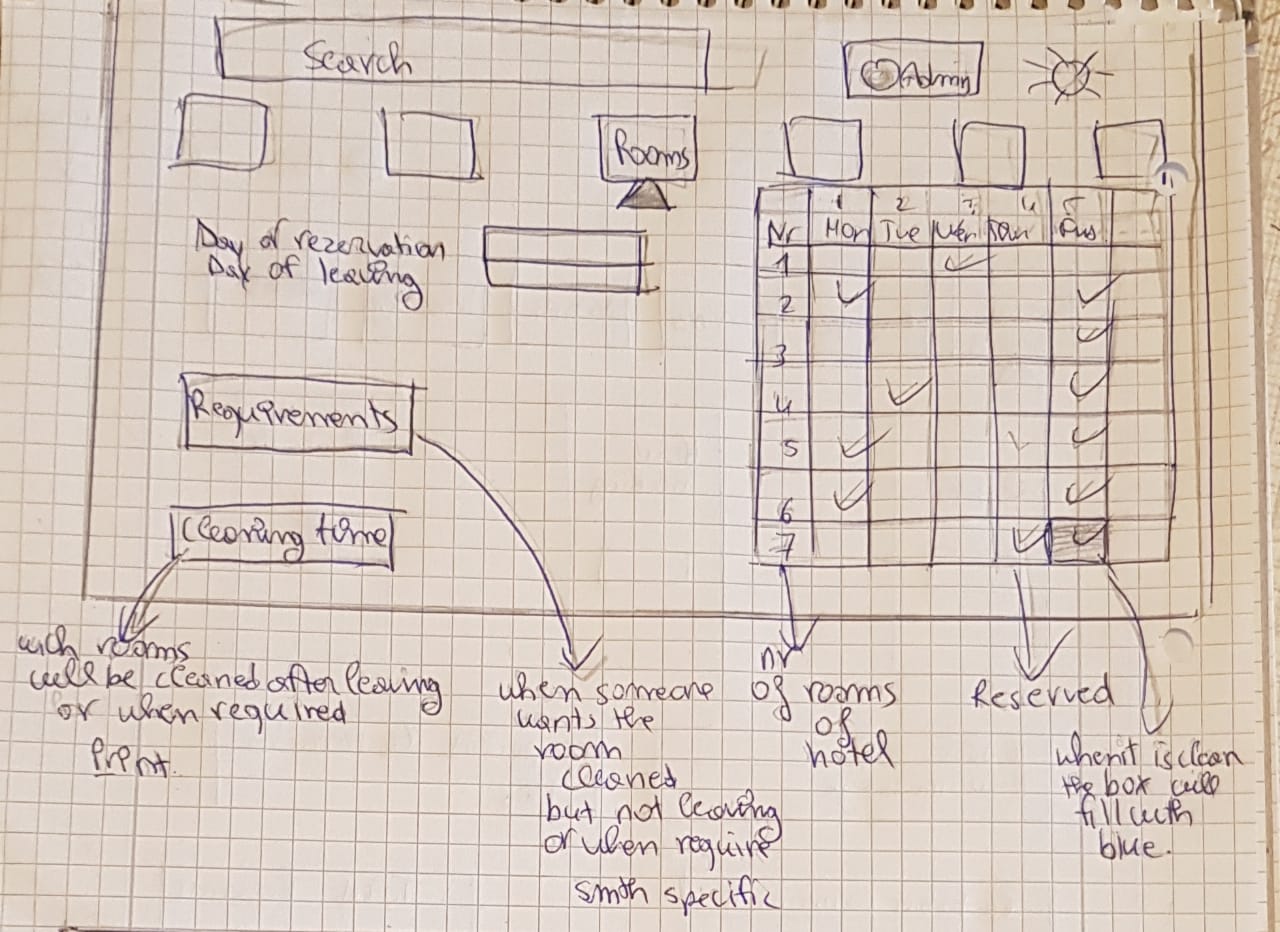 Search
Admin
Rooms
1 2 3 4 5
Nr Mon Tue Wen
1
2
3
4
5
6
7
Day of rezervation
Day of leaving
Requirements
Cleaning time
wich rooms
will be cleaned after leaving
or when required
Print.
when someone
wants the
room
cleaned
but not leaving
or when require
smth specific
nr
of rooms
of
hotel
Reserved
when it is clean
the box will
fill with
blue.